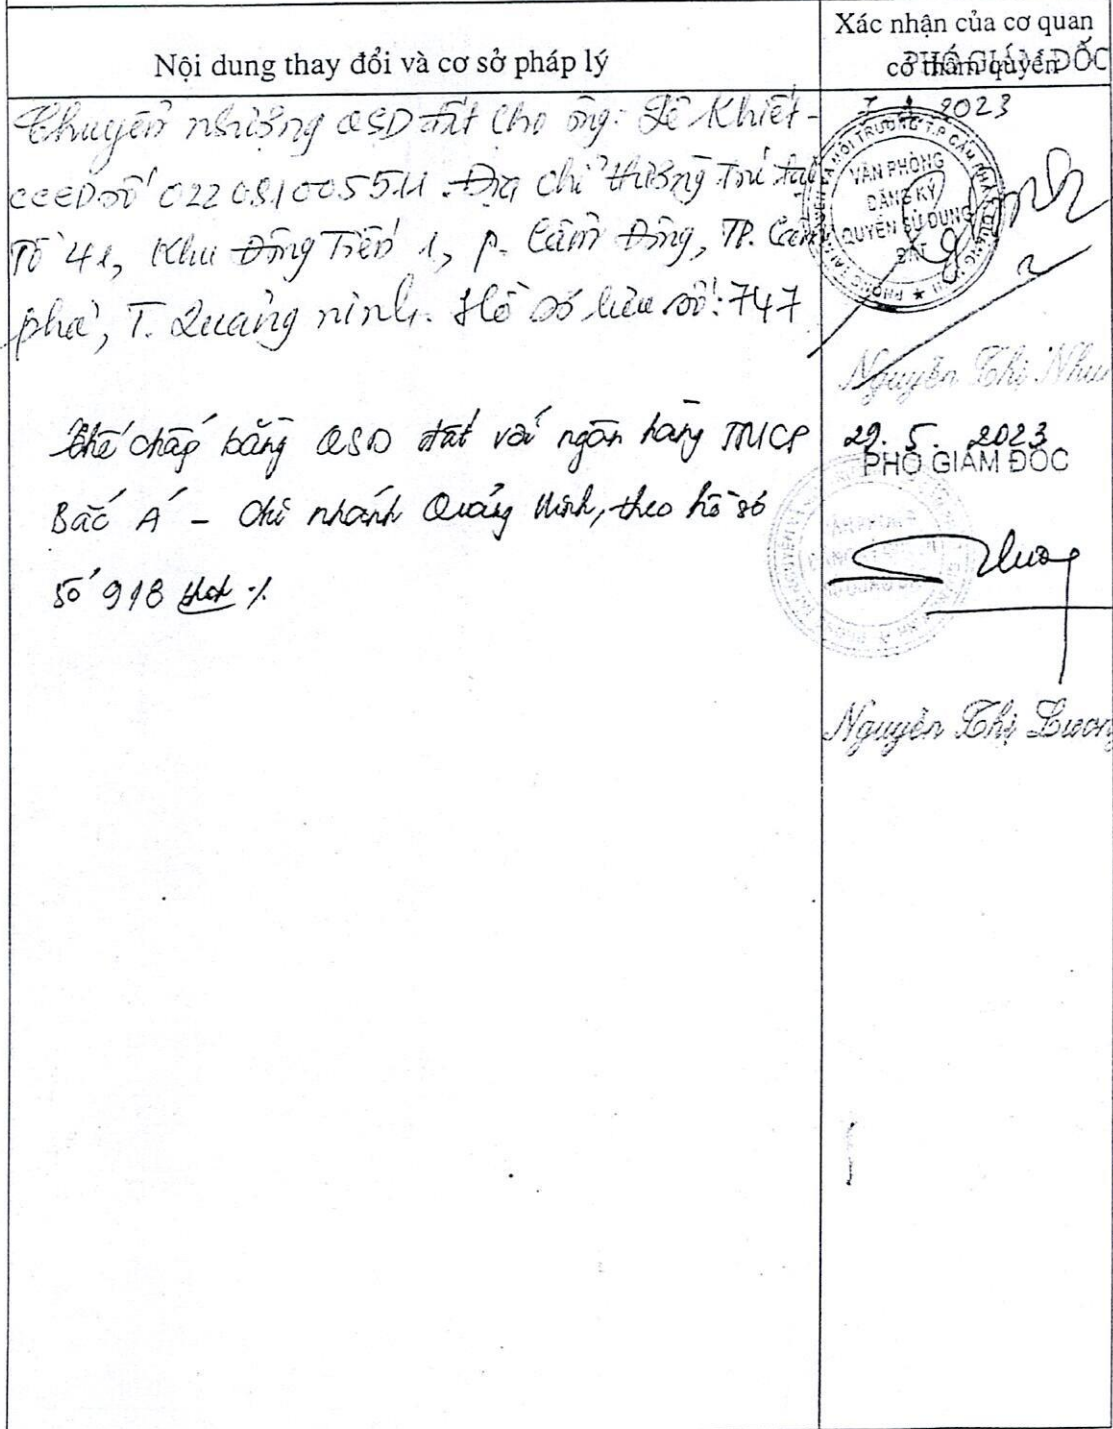 Nội dung thay đổi và cơ sở pháp lý
Xác nhận của cơ quan
có thẩm quyền
PHÓ GIÁM ĐỐC
Chuyển nhượng QSD đất cho ông: Lê Khiết -
CCCD số 022081005511. Địa chỉ thường trú tại
Tổ 41, Khu Đông Tiến 1, p. Cẩm Đông, TP. Cẩm
phả, T. Quảng ninh. Hồ sơ lưu số: 747
2023
VĂN PHÒNG
ĐĂNG KÝ
QUYỀN SỬ DỤNG
ĐẤT
Nguyễn Thị Nhu
Thế chấp bằng QSD đất với ngân hàng TMCP
Bắc Á - Chi nhánh Quảng Ninh, theo hồ sơ
số 918
29. 5. 2023
PHÓ GIÁM ĐỐC
Nguyễn Thị Lương